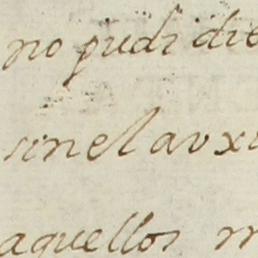 no pudi die
sin el auxi
aquellos m